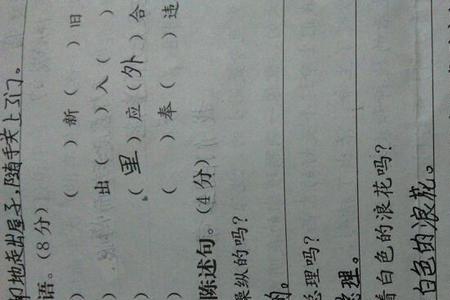 地走出屋子,随手关上了门。
语。(8分)
) ( )新( )旧
) ( )出( )入( )
) (里)应(外)合
) ( )奉( )违
陈述句。(4分)
操纵的吗?
的。
总理吗?
总理。
着白色的浪花吗?
白色的浪花。